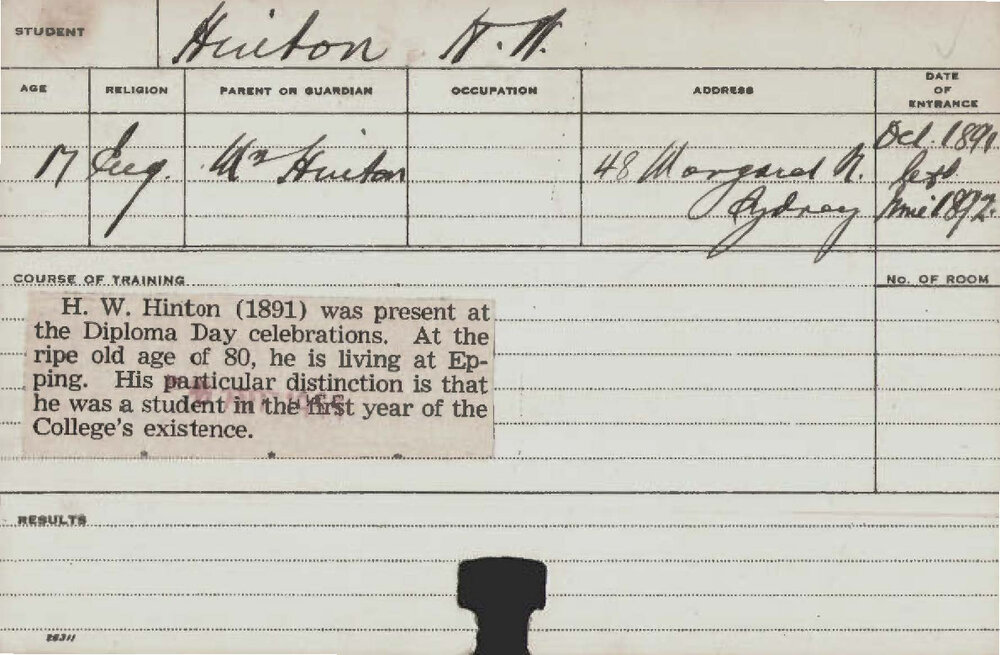 STUDENT Hinton H. W.
AGE RELIGION PARENT OR GUARDIAN OCCUPATION ADDRESS DATE OF ENTRANCE
17 Eng. Mr Hinton 48 Margaret St. Oct. 1891
Sydney June 1892.
COURSE OF TRAINING No. OF ROOM
H. W. Hinton (1891) was present at
the Diploma Day celebrations. At the
ripe old age of 80, he is living at Ep-
ping. His particular distinction is that
he was a student in the first year of the
College's existence.
* * *
RESULTS
26311